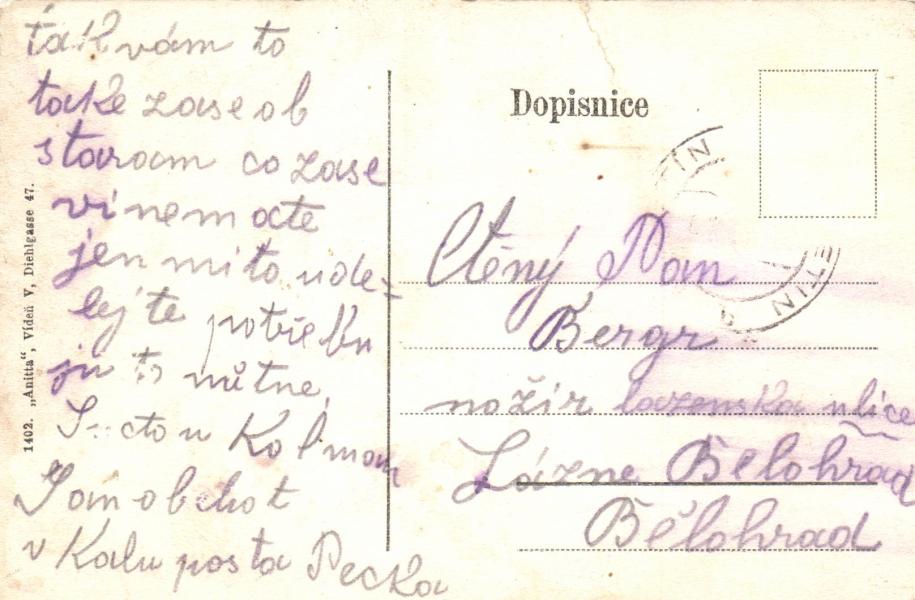 tak vám to
také zase ob
staraam co zase
vi nemate
jen mi to ude-
lejte potřebu
ju to nůtne,
S uctou Kolman
Jan obchot
v Kalu posta Pecka
1402. „Anitta“, Vídeň V, Diehlgasse 47.
Dopisnice
Ctěný Pan
Bergr
nožíř lazenska ulice
Lázne Bělohrad
Bělohrad